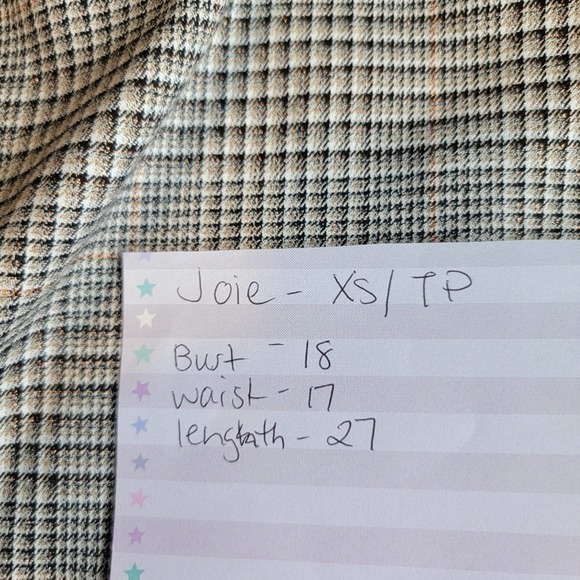 Joie - XS/TP
Bust - 18
waist - 17
lengtath - 27